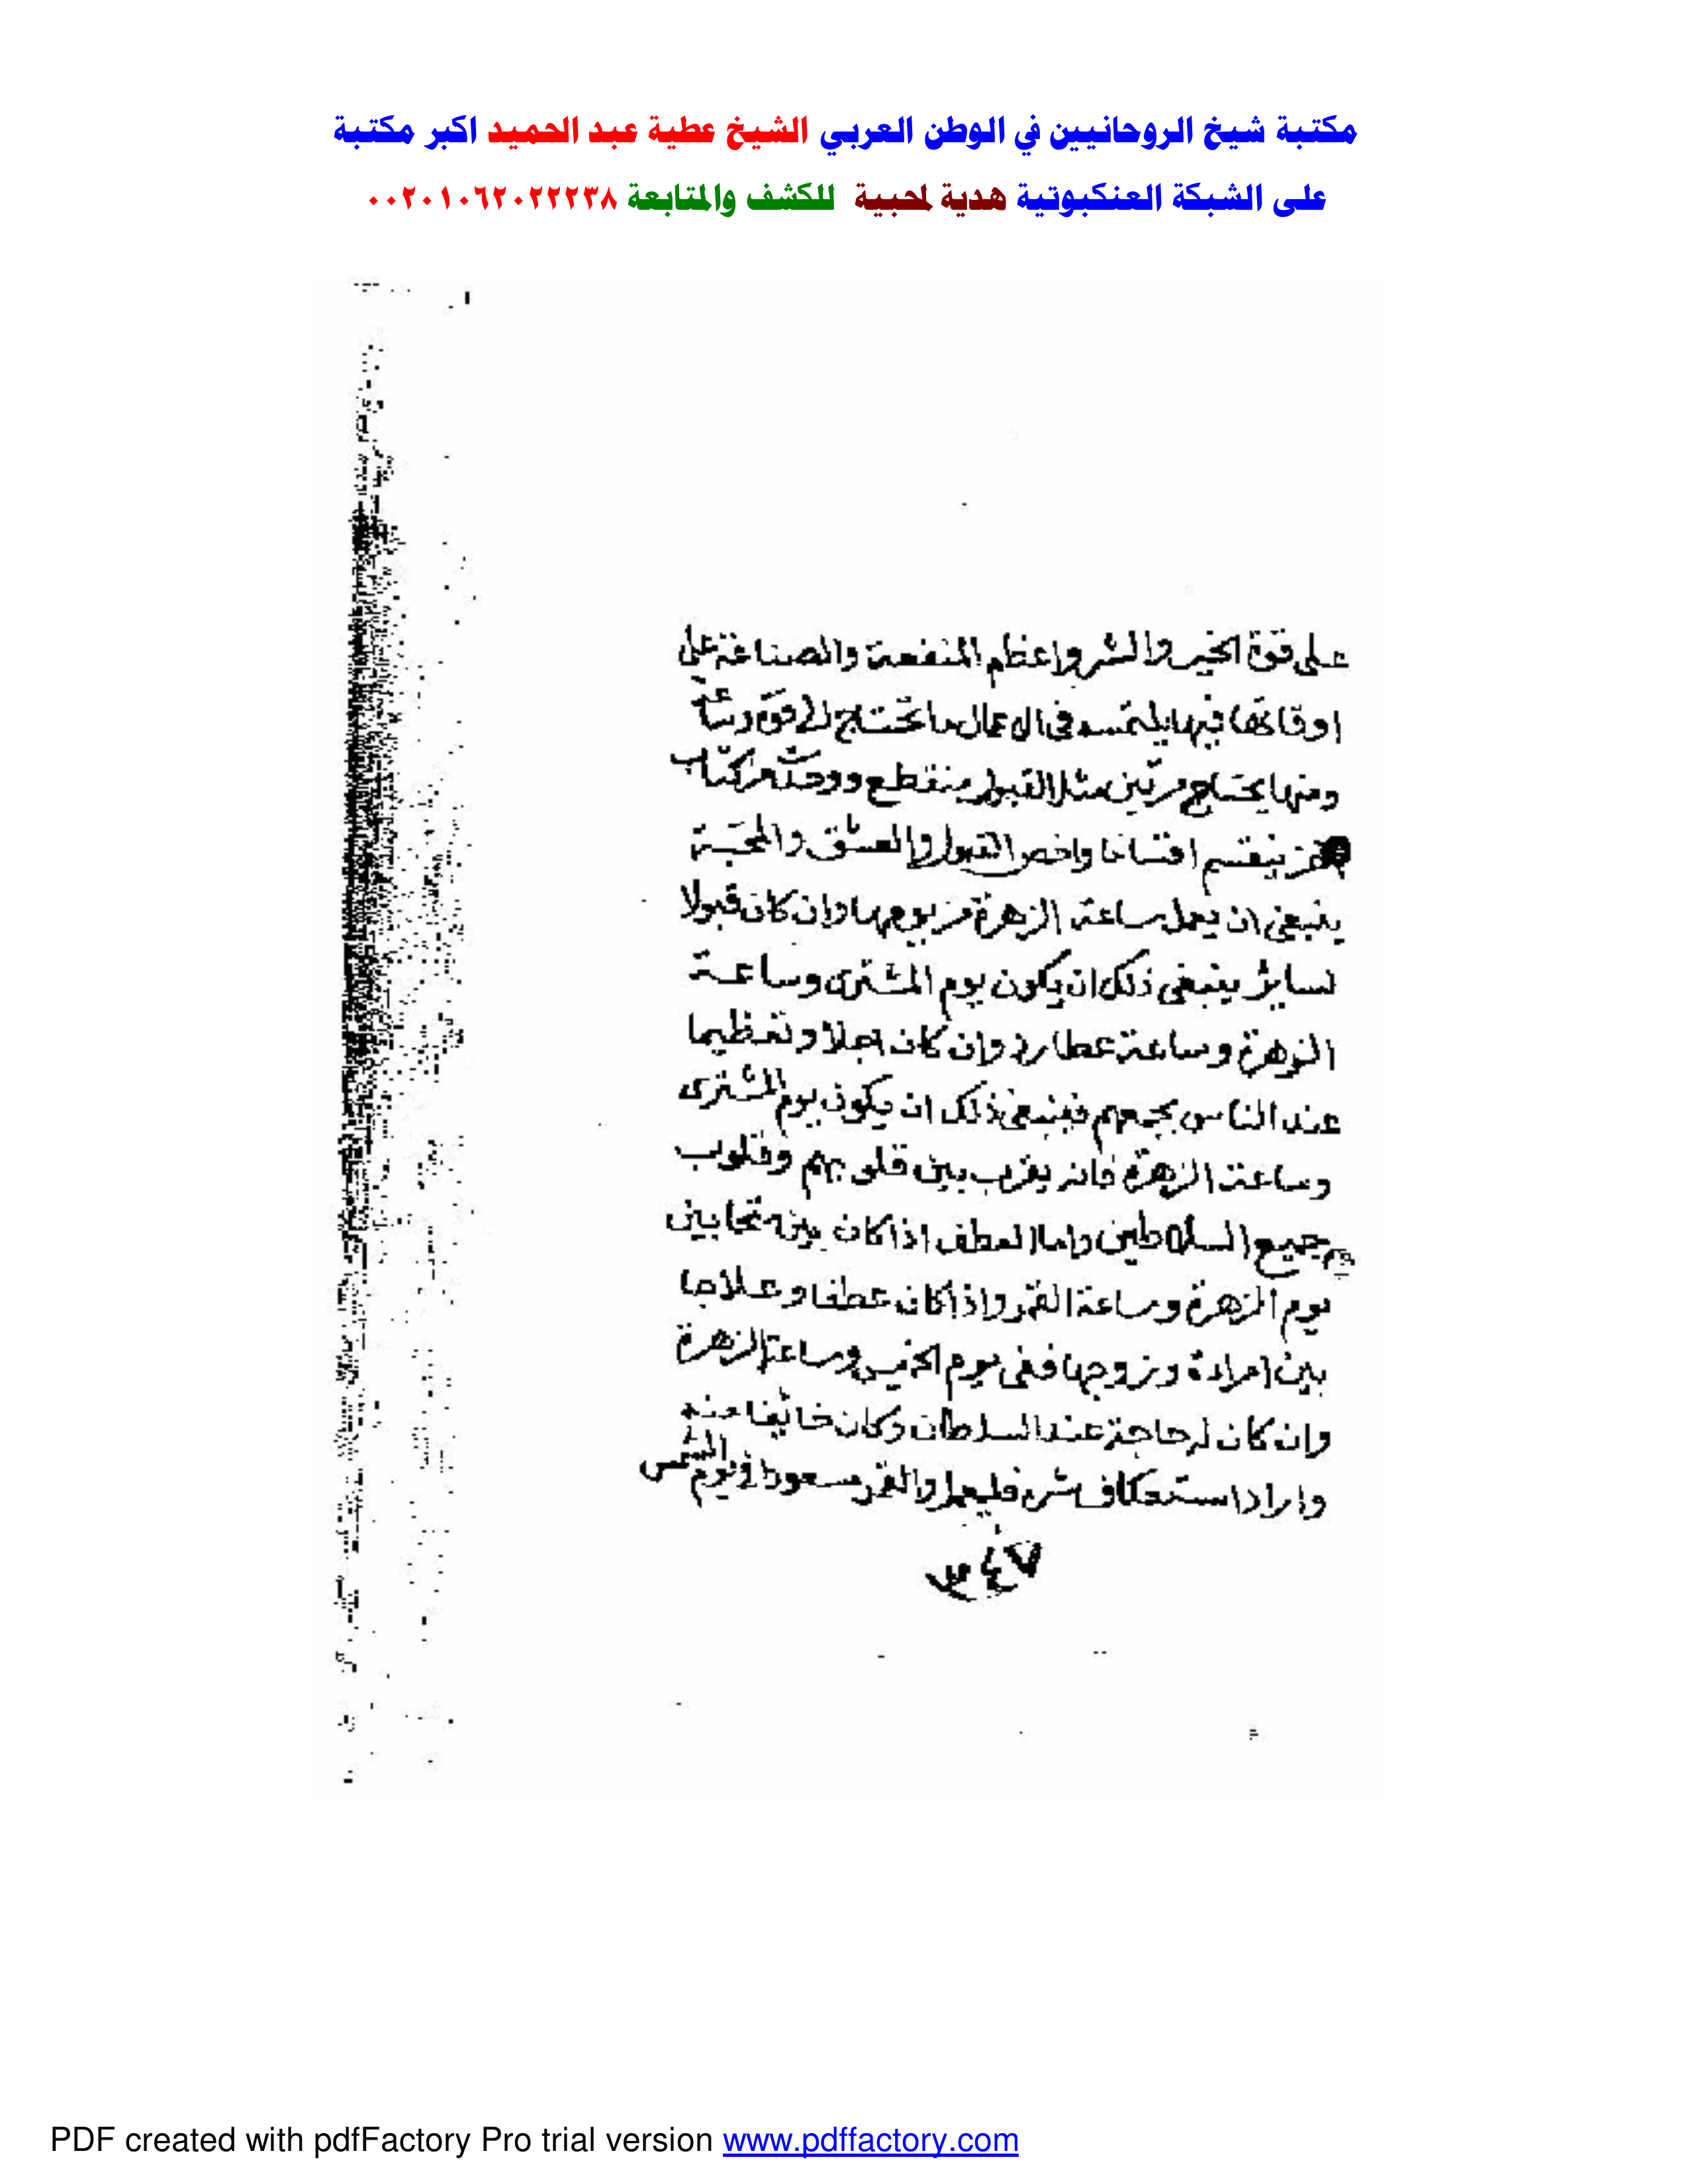 مكتبة شيخ الروحانيين في الوطن العربي الشيخ عطية عبد الحميد اكبر مكتبة
على الشبكة العنكبوتية هدية لمحبية للكشف والمتابعة ٠٠٢٠١٠٦٢٠٢٢٢٣٨
على قوة الخير والشر واعظم المنفعة والصناعة على
اوقاتها فيها يلتمسه في الاعمال ما تحتاج
ومنها يحتاج مرتين مثل القبول ينقطع
ينقسم اقساما واخص القبول والعشق والمحبة
ينبغى ان يعمل ساعة الزهرة من يومها وان كان قبولا
لساير ينبغى ذلك ان يكون يوم المشترى وساعة
الزهرة وساعة عطارد وان كان اجلا وتعظيما
عند الناس بجمعهم فينبغى ذلك ان يكون يوم المشترى
وساعة الزهرة فانه يقرب بين قلوبهم وقلوب
جميع السلاطين واما العطف اذا كان بين تحابين
يوم الزهرة وساعة القمر واذا كان عطفا
بين امراة وزوجها ففى يوم الخميس وساعة الزهرة
وان كان له حاجة عند السلطان وكان خائفا منه
واراد استعكاف شره فليعمل والقمر مسعودا في يوم الشمس
٣٤٧
PDF created with pdfFactory Pro trial version www.pdffactory.com